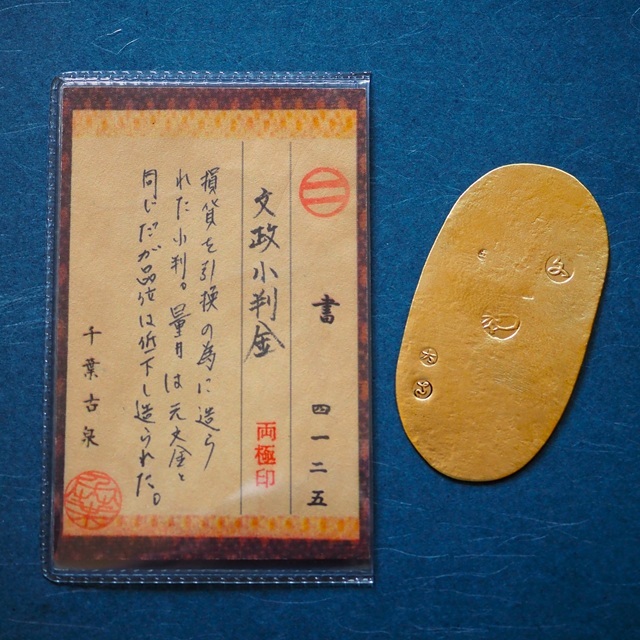 書 四一二五
文政小判金 両極印
損貨を引換の為に造ら
れた小判。量目は元文金と
同じだが品位は低下し造られた。
千葉古泉